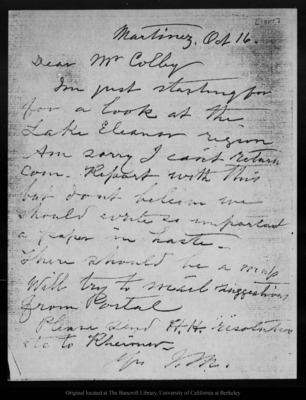 Martinez, Oct 16.
Dear Mr Colby
Im just starting for
for a look at the
Lake Eleanor region
Am sorry I cant return
Com. Report with this
but dont believe we
should write so important
a paper in haste.
There should be a map
Will try to mail suggestions
from Portal
Please send H.H. resolution
etc to
Yrs J.M.
Original located at The Bancroft Library, University of California at Berkeley